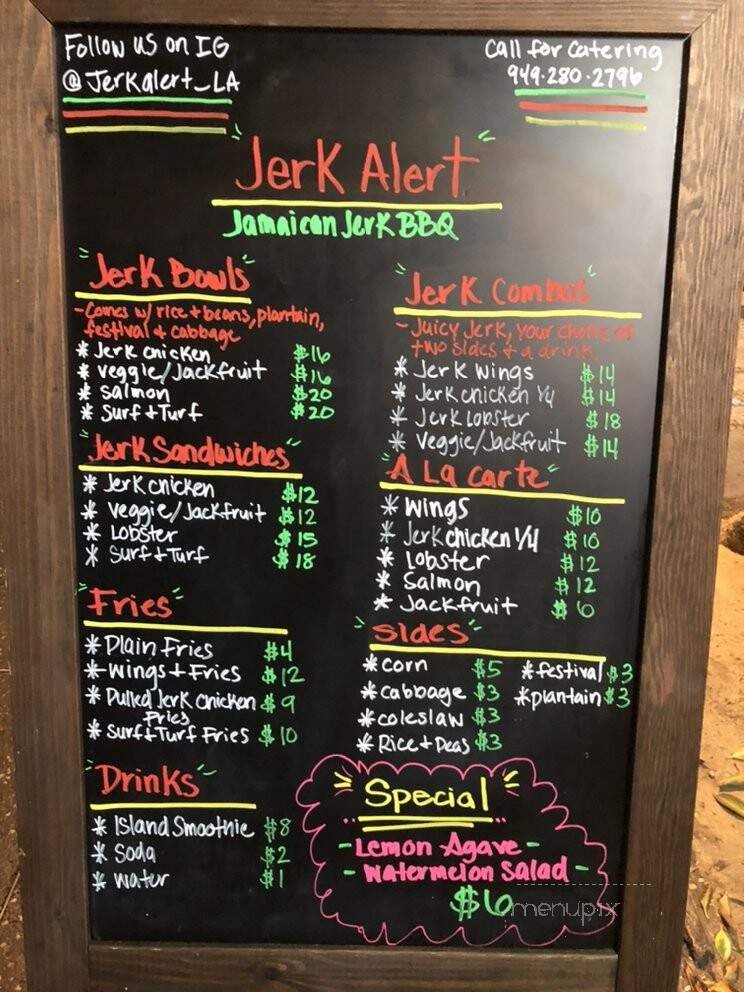 Follow us on IG
@Jerkalert_LA
Call for Catering
949.280.2796
Jerk Alert
Jamaican Jerk BBQ
Jerk Bowls
- Comes w/ rice + beans, plantain,
festival + cabbage
* Jerk chicken $16
* Veggie/Jackfruit $16
* Salmon $20
* Surf + Turf $20
Jerk Sandwiches
* Jerk chicken $12
* Veggie/Jackfruit $12
* Lobster $15
* Surf + Turf $18
Fries
* Plain Fries $4
* Wings + Fries $12
* Pulled Jerk Chicken $9
Fries
* Surf + Turf Fries $10
Drinks
* Island Smoothie $8
* Soda $2
* Water $1
Jerk Combos
- Juicy Jerk, your choice of
two sides + a drink
* Jerk Wings $14
* Jerk chicken 1/4 $14
* Jerk Lobster $18
* Veggie/Jackfruit $14
A La carte
* Wings $10
* Jerk chicken 1/4 $10
* Lobster $12
* Salmon $12
* Jackfruit $6
sides
* corn $5 * festival $3
* cabbage $3 * plantain $3
* coleslaw $3
* Rice + Peas $3
Special
- Lemon Agave -
- Watermelon Salad -
$6
menupix